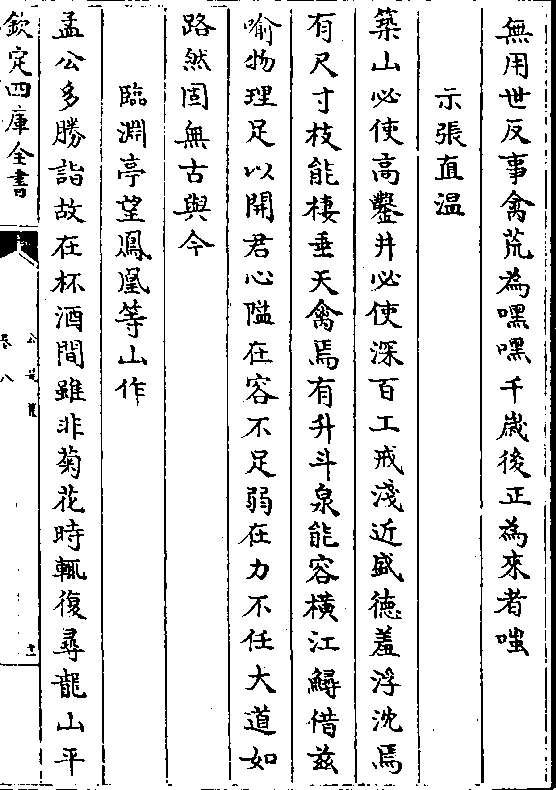 無用世反事禽荒為嘿嘿千歲後正為來者嗤
示張直温
築山必使髙鑿井必使深百工戒淺近盛徳羞浮沈焉
有尺寸枝能棲垂天禽焉有升斗泉能容橫江鱘借兹
喻物理足以開君心隘在容不足弱在力不任大道如
路然固無古與今
臨淵亭望鳳凰等山作
孟公多勝詣故在杯酒間雖非菊花時輒復尋龍山平
欽定四庫全書
卷八